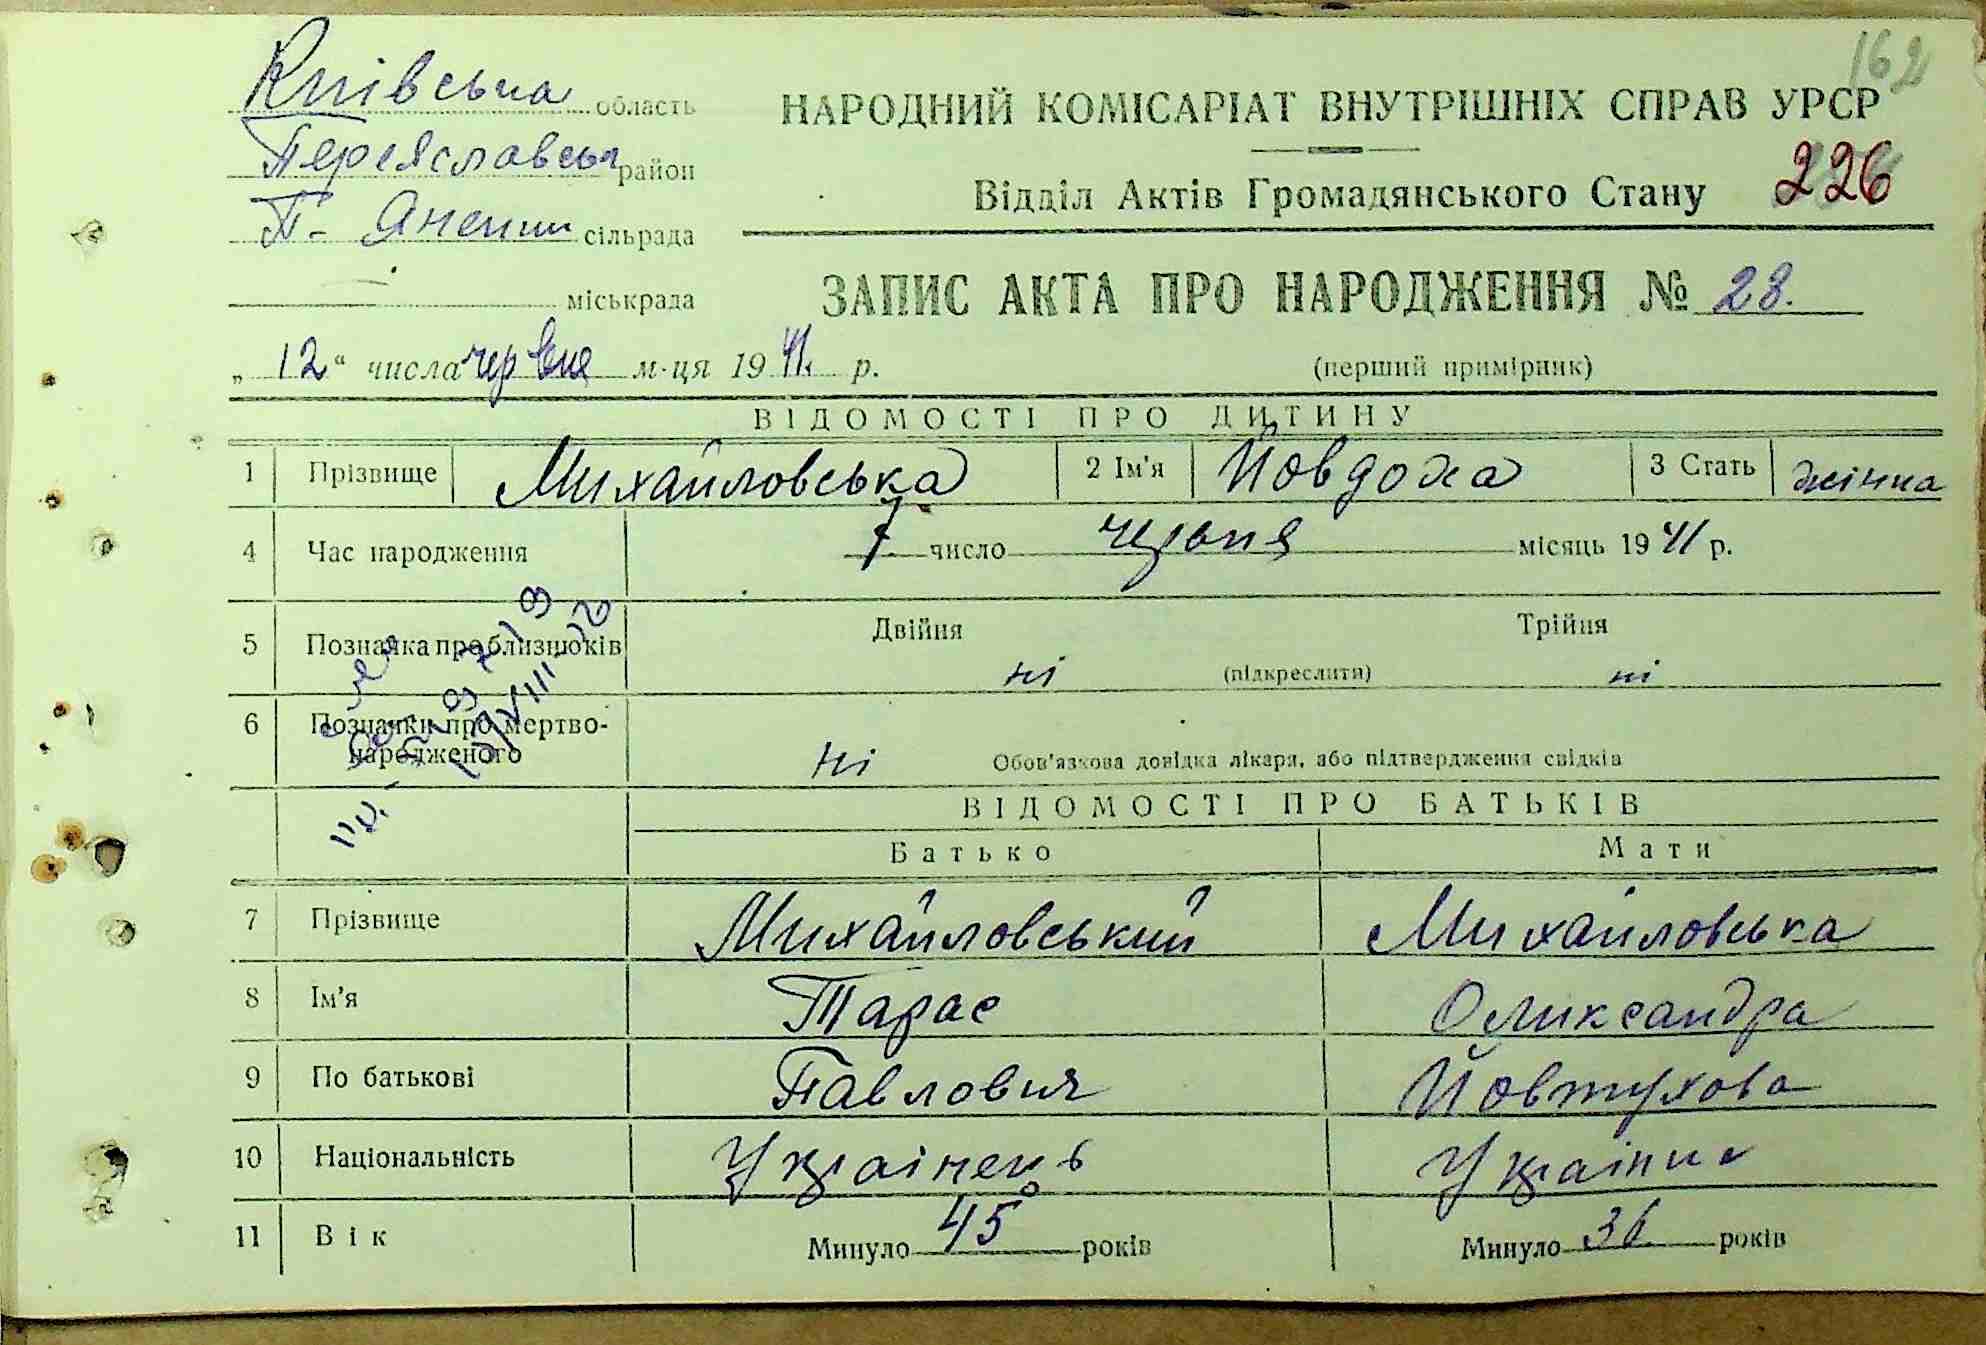 162
Київська область
НАРОДНИЙ КОМІСАРІАТ ВНУТРІШНІХ СПРАВ УРСР
Переяславськ район
Відділ Актів Громадянського Стану 226
П- сільрада
міськрада
ЗАПИС АКТА ПРО НАРОДЖЕННЯ № 28.
„ 12 “ числа червня м-ця 19 41. р.
(перший примірник)
ВІДОМОСТІ ПРО ДИТИНУ
1 Прізвище Михайловська 2 Ім'я Йовдоха 3 Стать жінка
4 Час народження 7 число червня місяць 19 41 р.
5 Позначка про близнюків Двійня ні (підкреслити) Трійня ні
6 Позначки про мертво-
народженого ні Обов'язкова довідка лікаря, або підтвердження свідків
ВІДОМОСТІ ПРО БАТЬКІВ
Батько Мати
7 Прізвище Михайловський Михайловська
8 Ім'я Тарас Олександра
9 По батькові Павлович Йовтухова
10 Національність Українець
11 Вік Минуло 45 років Минуло 36 років